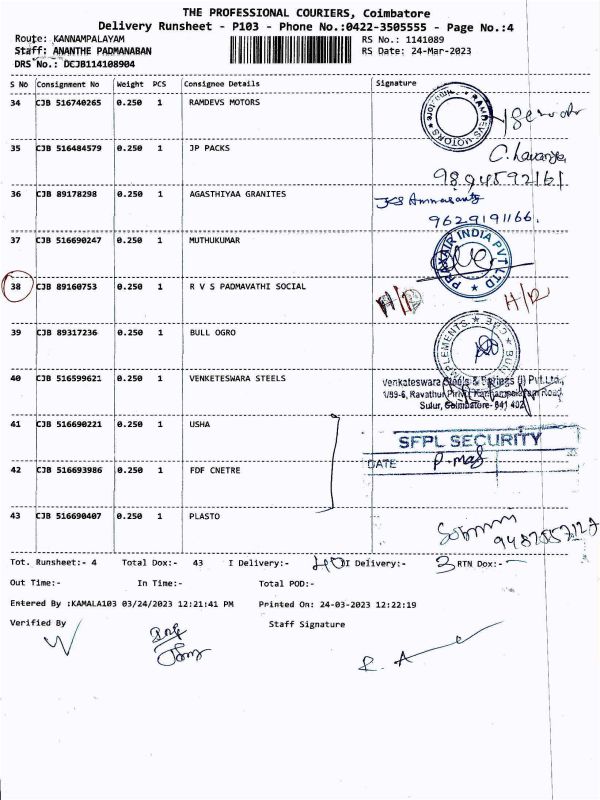 THE PROFESSIONAL COURIERS, Coimbatore
Delivery Runsheet - P103 - Phone No.:0422-3505555 - Page No.:4
Route: KANNAMPALAYAM
RS No.: 1141089
Staff: ANANTHE PADMANABAN
RS Date: 24-Mar-2023
DRS No.: DCJB114108904
S No Consignment No Weight PCS Consignee Details Signature
34 CJB 516740265 0.250 1 RAMDEVS MOTORS
RAMDEVS MOTORS
35 CJB 516484579 0.250 1 JP PACKS
C. Lavanya
9894592161
36 CJB 89178298 0.250 1 AGASTHIYAA GRANITES
9629191166.
37 CJB 516690247 0.250 1 MUTHUKUMAR
PRAXAIR INDIA PVT LTD
38 CJB 89160753 0.250 1 R V S PADMAVATHI SOCIAL
H/R H/R
39 CJB 89317236 0.250 1 BULL OGRO
40 CJB 516599621 0.250 1 VENKETESWARA STEELS
Venkateswara Steels & Springs (I) Pvt.Ltd.,
1/89-6, Ravathur Pirivu, Kannampalayam Road,
Sulur, Coimbatore- 641 402
41 CJB 516690221 0.250 1 USHA
SFPL SECURITY
42 CJB 516693986 0.250 1 FDF CNETRE
DATE
43 CJB 516690407 0.250 1 PLASTO
Tot. Runsheet:- 4 Total Dox:- 43 I Delivery:- 40 I Delivery:- 3 RTN Dox:-
Out Time:- In Time:- Total POD:-
Entered By :KAMALA103 03/24/2023 12:21:41 PM Printed On: 24-03-2023 12:22:19
Verified By Staff Signature